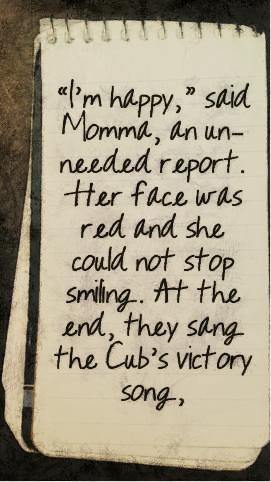 “I’m happy,” said
Momma, an un-
needed report.
Her face was
red and she
could not stop
smiling. At the
end, they sang
the Cub’s victory
song,